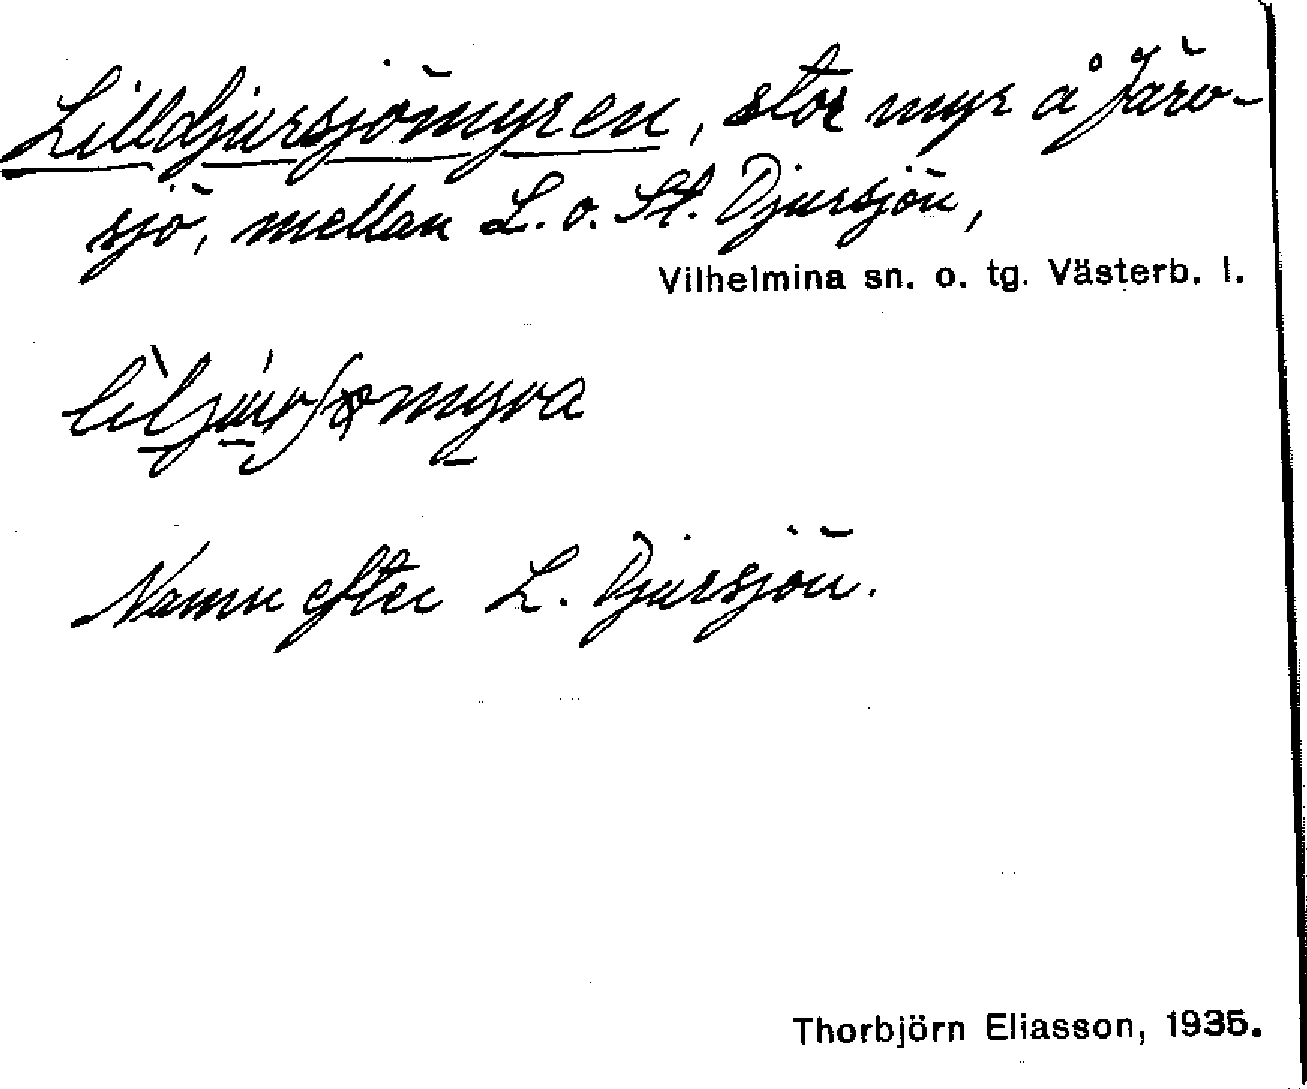 Lilldjursjömyren, stor myr å Järv-
sjö, mellan L. o. St. Djursjön,
Vilhelmina sn. o. tg. Västerb. l.
Namn efter L. Djursjön.
Thorbjörn Eliasson, 1935.